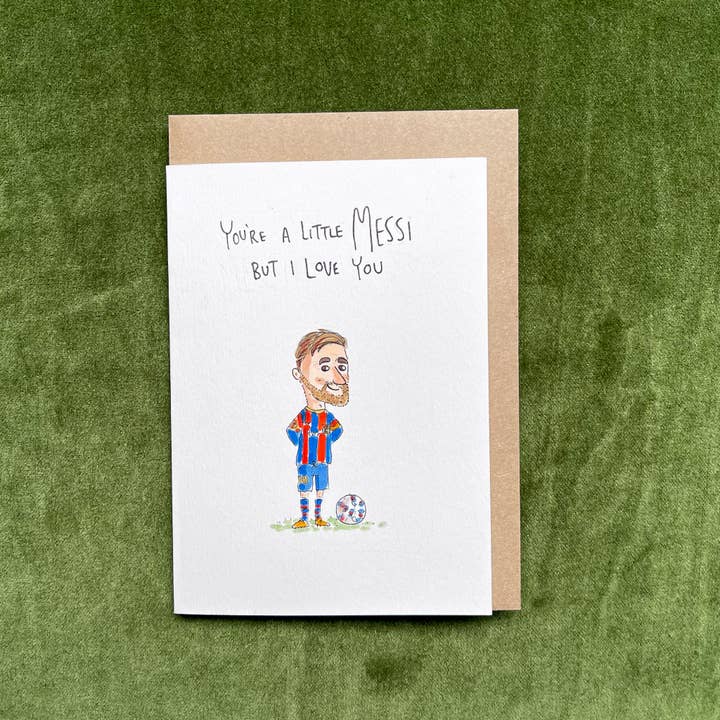 YOU'RE A LITTLE MESSI
BUT I LOVE YOU